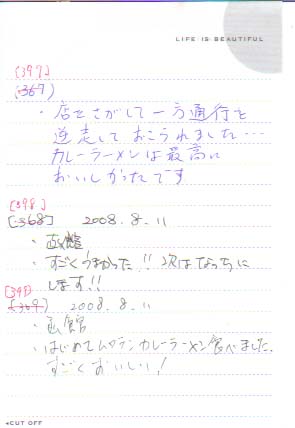 LIFE IS BEAUTIFUL
[397]
(367)
・店をさがして一方通行を
逆走しておこられました…
カレーラーメンは最高に
おいしかったです
[398]
[368] 2008.8.11
・函館
・すごくうまかった!!次はなっちに
します!!
[399]
[369] 2008.8.11
・函館
・はじめてムロランカレーラーメン食べました。
すごくおいしい!
◂CUT OFF